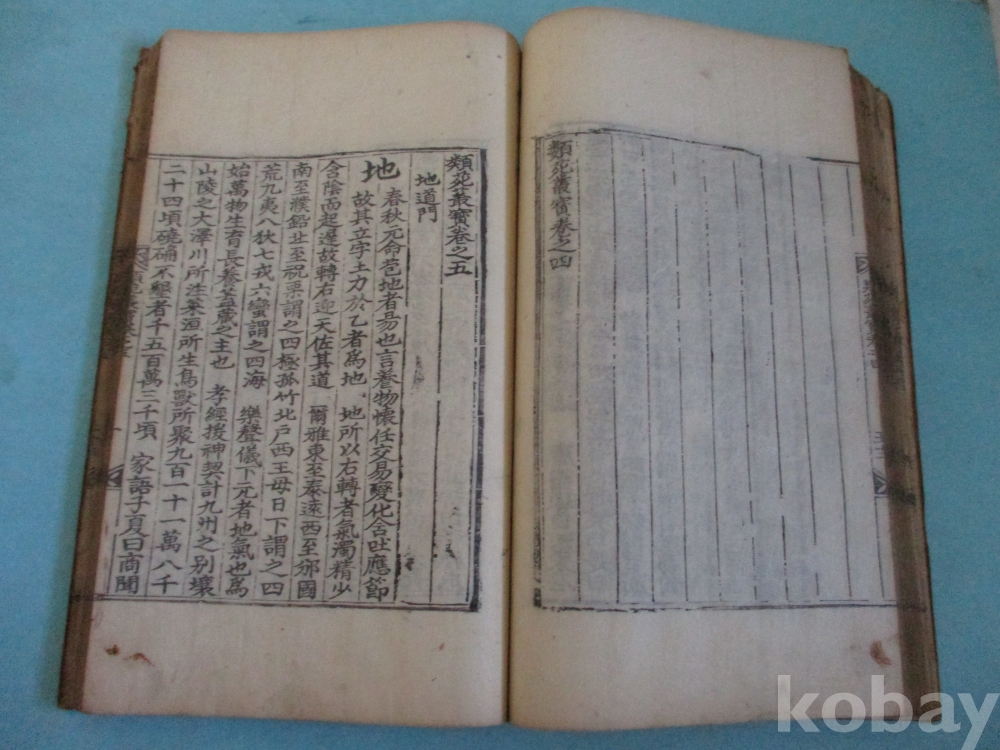 類苑叢寶卷之四
類苑叢寶卷之五
地道門
地 春秋元命苞地者易也言養物懷任交易變化含吐應節
故其立字土力於乙者爲地 地所以右轉者氣濁精少
含陰而起遲故轉右迎天佐其道 爾雅東至泰遠西至邠國
南至濮鉛北至祝栗謂之四極孤竹北戶西王母日下謂之四
荒九夷八狄七戎六蠻謂之四海 樂聲儀下元者地氣也爲
始萬物生育長養蓋藏之主也 孝經援神契計九州之別壤
山陵之大澤川所注萊沮所生鳥獸所聚九百一十一萬八千
二十四頃磽确不墾者千五百萬三千頃 家語子夏曰商聞
kobay